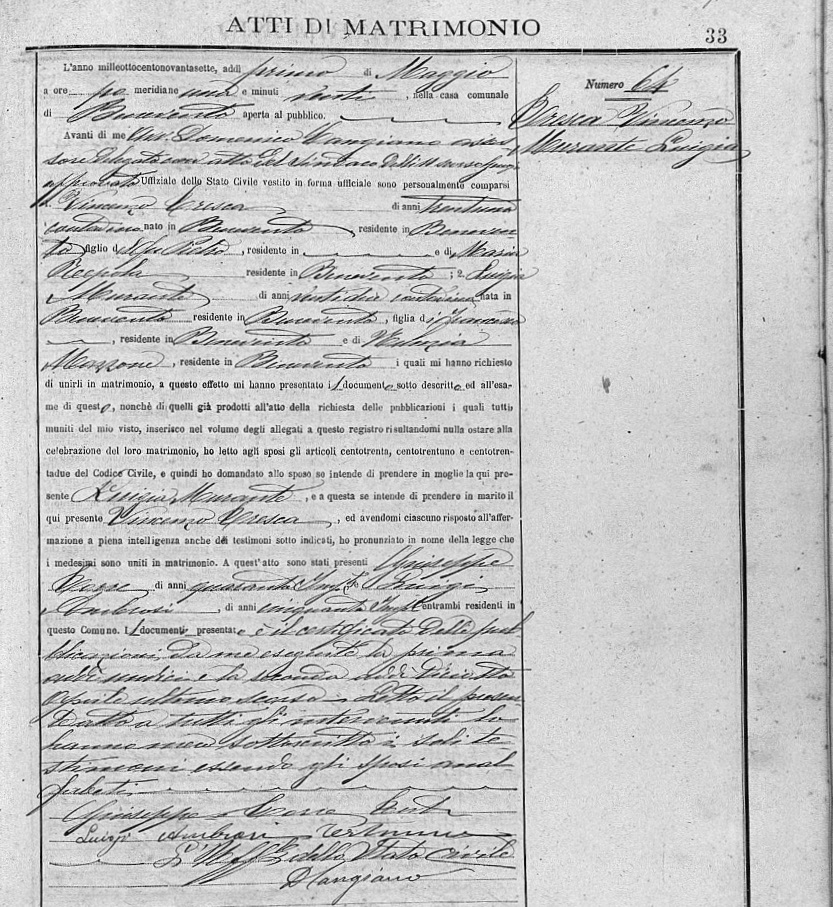 ATTI DI MATRIMONIO
33
L'anno milleottocentonovantasette, addì primo di Maggio
a ore po meridiane una e minuti venti, nella casa comunale
di Benevento aperta al pubblico.
Avanti di me Domenico Cangiano asses
sore delegato con atto del Sindaco delli scorso
approvato Uffiziale dello Stato Civile vestito in forma ufficiale sono personalmente comparsi
1. Vincenzo Cresca di anni trentuno
contadino nato in Benevento, residente in Beneven
to figlio del fu Pietro, residente in e di Maria
residente in Benevento; 2. Luigia
Murante di anni ventidue contadina nata in
Benevento residente in Benevento, figlia di Francesco
, residente in Benevento e di
Mazzone, residente in Benevento i quali mi hanno richiesto
di unirli in matrimonio, a questo effetto mi hanno presentato il documento sotto descritto ed all'esa-
me di questo, nonchè di quelli già prodotti all'atto della richiesta delle pubblicazioni i quali tutti
muniti del mio visto, inserisco nel volume degli allegati a questo registro risultandomi nulla ostare alla
celebrazione del loro matrimonio, ho letto agli sposi gli articoli centotrenta, centotrentuno e centotren-
tadue del Codice Civile, e quindi ho domandato allo sposo se intende di prendere in moglie la qui pre-
sente Luigia Murante, e a questa se intende di prendere in marito il
qui presente Vincenzo Cresca, ed avendomi ciascuno risposto all'affer-
mazione a piena intelligenza anche dei testimoni sotto indicati, ho pronunziato in nome della legge che
i medesimi sono uniti in matrimonio. A quest'atto sono stati presenti Giuseppe
di anni quaranta Imp.to e Luigi
Ambrosi, di anni cinquanta Imp. entrambi residenti in
questo Comune. Il documento presentato è il certificato delle pub
blicazioni da me eseguite la prima
addì undici e la seconda addì diciotto
Aprile ultimo scorso. Letto il presen
te atto a tutti gli intervenuti lo
hanno meco sottoscritto i soli te
stimoni essendo gli sposi anal
fabeti.
Giuseppe
Luigi Ambrosi Testimone
L'Uff. dello Stato Civile
D Cangiano
Numero 64
Cresca Vincenzo
Murante Luigia